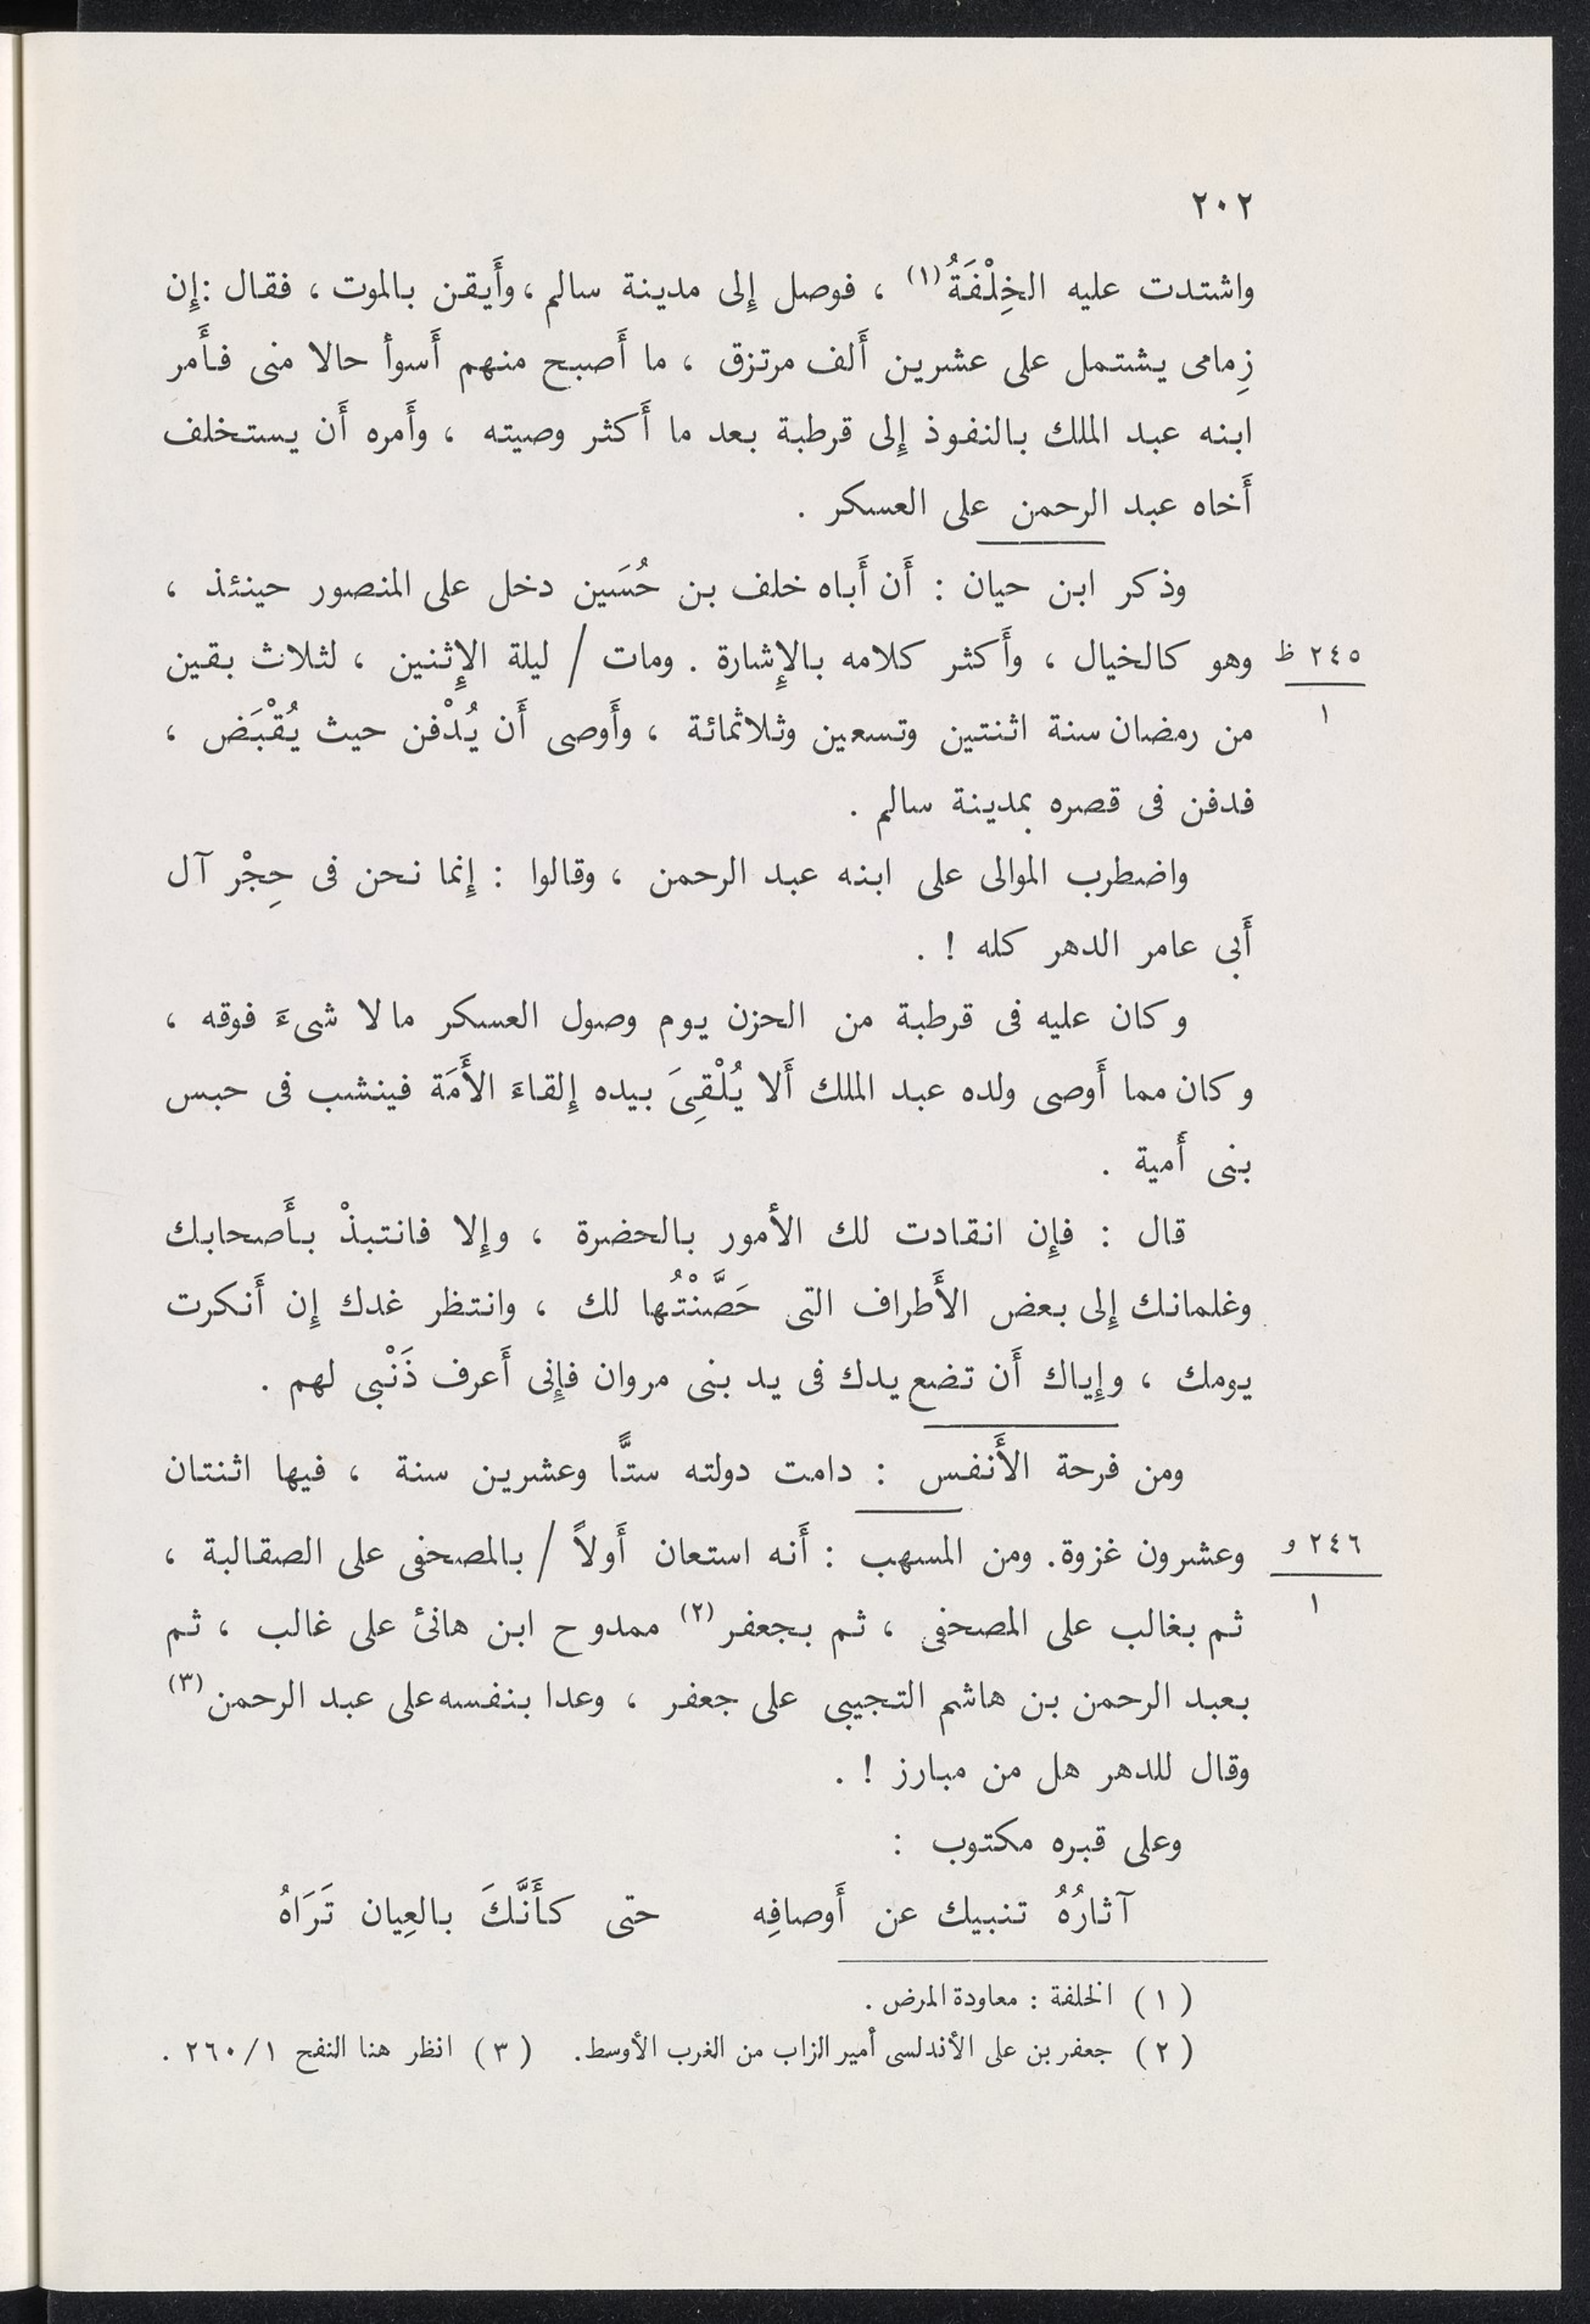 ٢٠٢
واشتدت عليه الخِلْفَةُ(١) ، فوصل إِلى مدينة سالم ، وأَيقن بالموت ، فقال : إِن
زِمامى يشتمل على عشرين أَلف مرتزق ، ما أَصبح منهم أَسوأ حالا منى فأَمر
ابنه عبد الملك بالنفوذ إِلى قرطبة بعد ما أَكثر وصيته ، وأَمره أَن يستخلف
أَخاه عبد الرحمن على العسكر .
وذكر ابن حيان : أَن أَباه خلف بن حُسَين دخل على المنصور حينئذ ،
وهو كالخيال ، وأَكثر كلامه بالإِشارة . ومات / ليلة الإِثنين ، لثلاث بقين
٢٤٥ ظ
١
من رمضان سنة اثنتين وتسعين وثلاثمائة ، وأَوصى أَن يُدْفن حيث يُقْبَض ،
فدفن فى قصره بمدينة سالم .
واضطرب الموالى على ابنه عبد الرحمن ، وقالوا : إِنما نحن فى حِجْر آل
أَبى عامر الدهر كله ! .
وكان عليه فى قرطبة من الحزن يوم وصول العسكر مالا شىءَ فوقه ،
وكان مما أَوصى ولده عبد الملك أَلا يُلْقِىَ بيده إِلقاءَ الأَمَة فينشب فى حبس
بنى أُمية .
قال : فإِن انقادت لك الأمور بالحضرة ، وإِلا فانتبذْ بأَصحابك
وغلمانك إِلى بعض الأَطراف التى حَصَّنْتُها لك ، وانتظر غدك إِن أَنكرت
يومك ، وإِياك أَن تضع يدك فى يد بنى مروان فإِنى أَعرف ذَنْبى لهم .
ومن فرحة الأَنفس : دامت دولته ستًّا وعشرين سنة ، فيها اثنتان
وعشرون غزوة. ومن المسهب : أَنه استعان أَولاً / بالمصحفى على الصقالبة ،
٢٤٦ و
١
ثم بغالب على المصحفى ، ثم بجعفر(٢) ممدوح ابن هانئ على غالب ، ثم
بعبد الرحمن بن هاشم التجيبى على جعفر ، وعدا بنفسه على عبد الرحمن(٣)
وقال للدهر هل من مبارز ! .
وعلى قبره مكتوب :
آثارُهُ تنبيك عن أَوصافِه حتى كأَنَّكَ بالعِيان تَرَاهُ
(١) الخلفة : معاودة المرض .
(٢) جعفر بن على الأندلسى أمير الزاب من الغرب الأوسط. (٣) انظر هنا النفح ٢٦٠/١ .